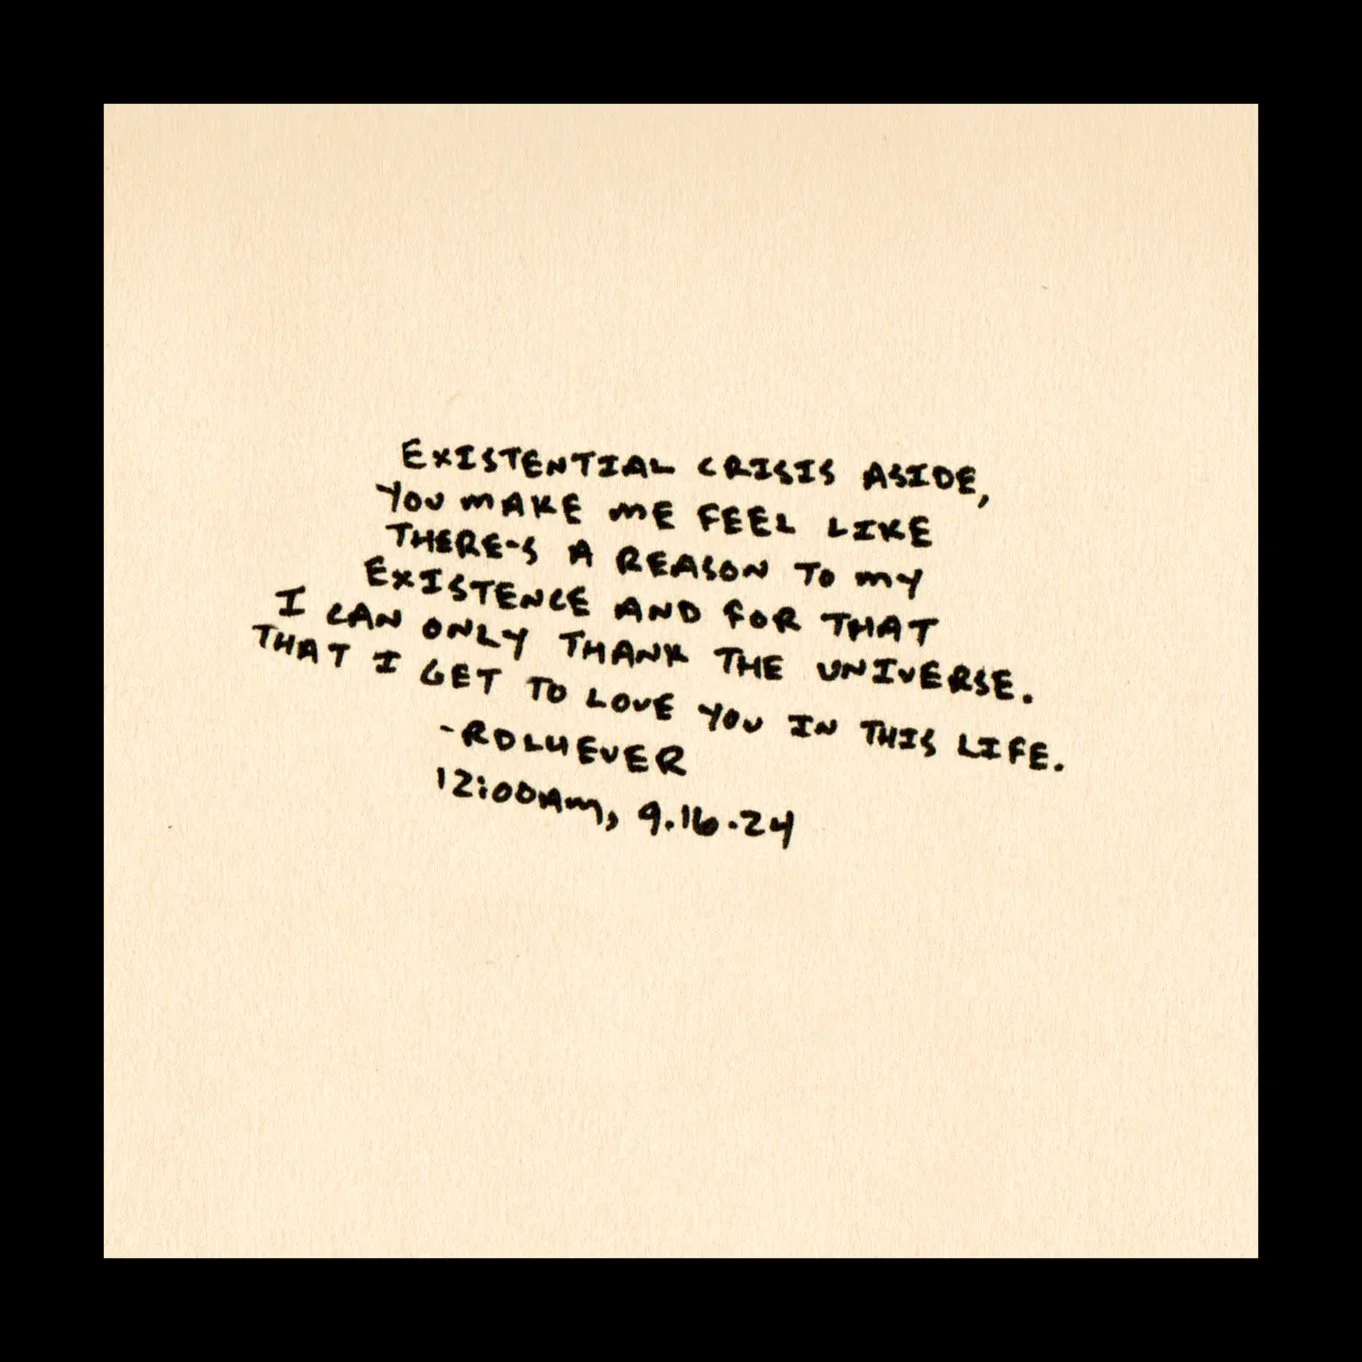 EXISTENTIAL CRISIS ASIDE,
YOU MAKE ME FEEL LIKE
THERE'S A REASON TO MY
EXISTENCE AND FOR THAT
I CAN ONLY THANK THE UNIVERSE.
THAT I GET TO LOVE YOU IN THIS LIFE.
-RDLHEVER
12:00AM, 9.16.24